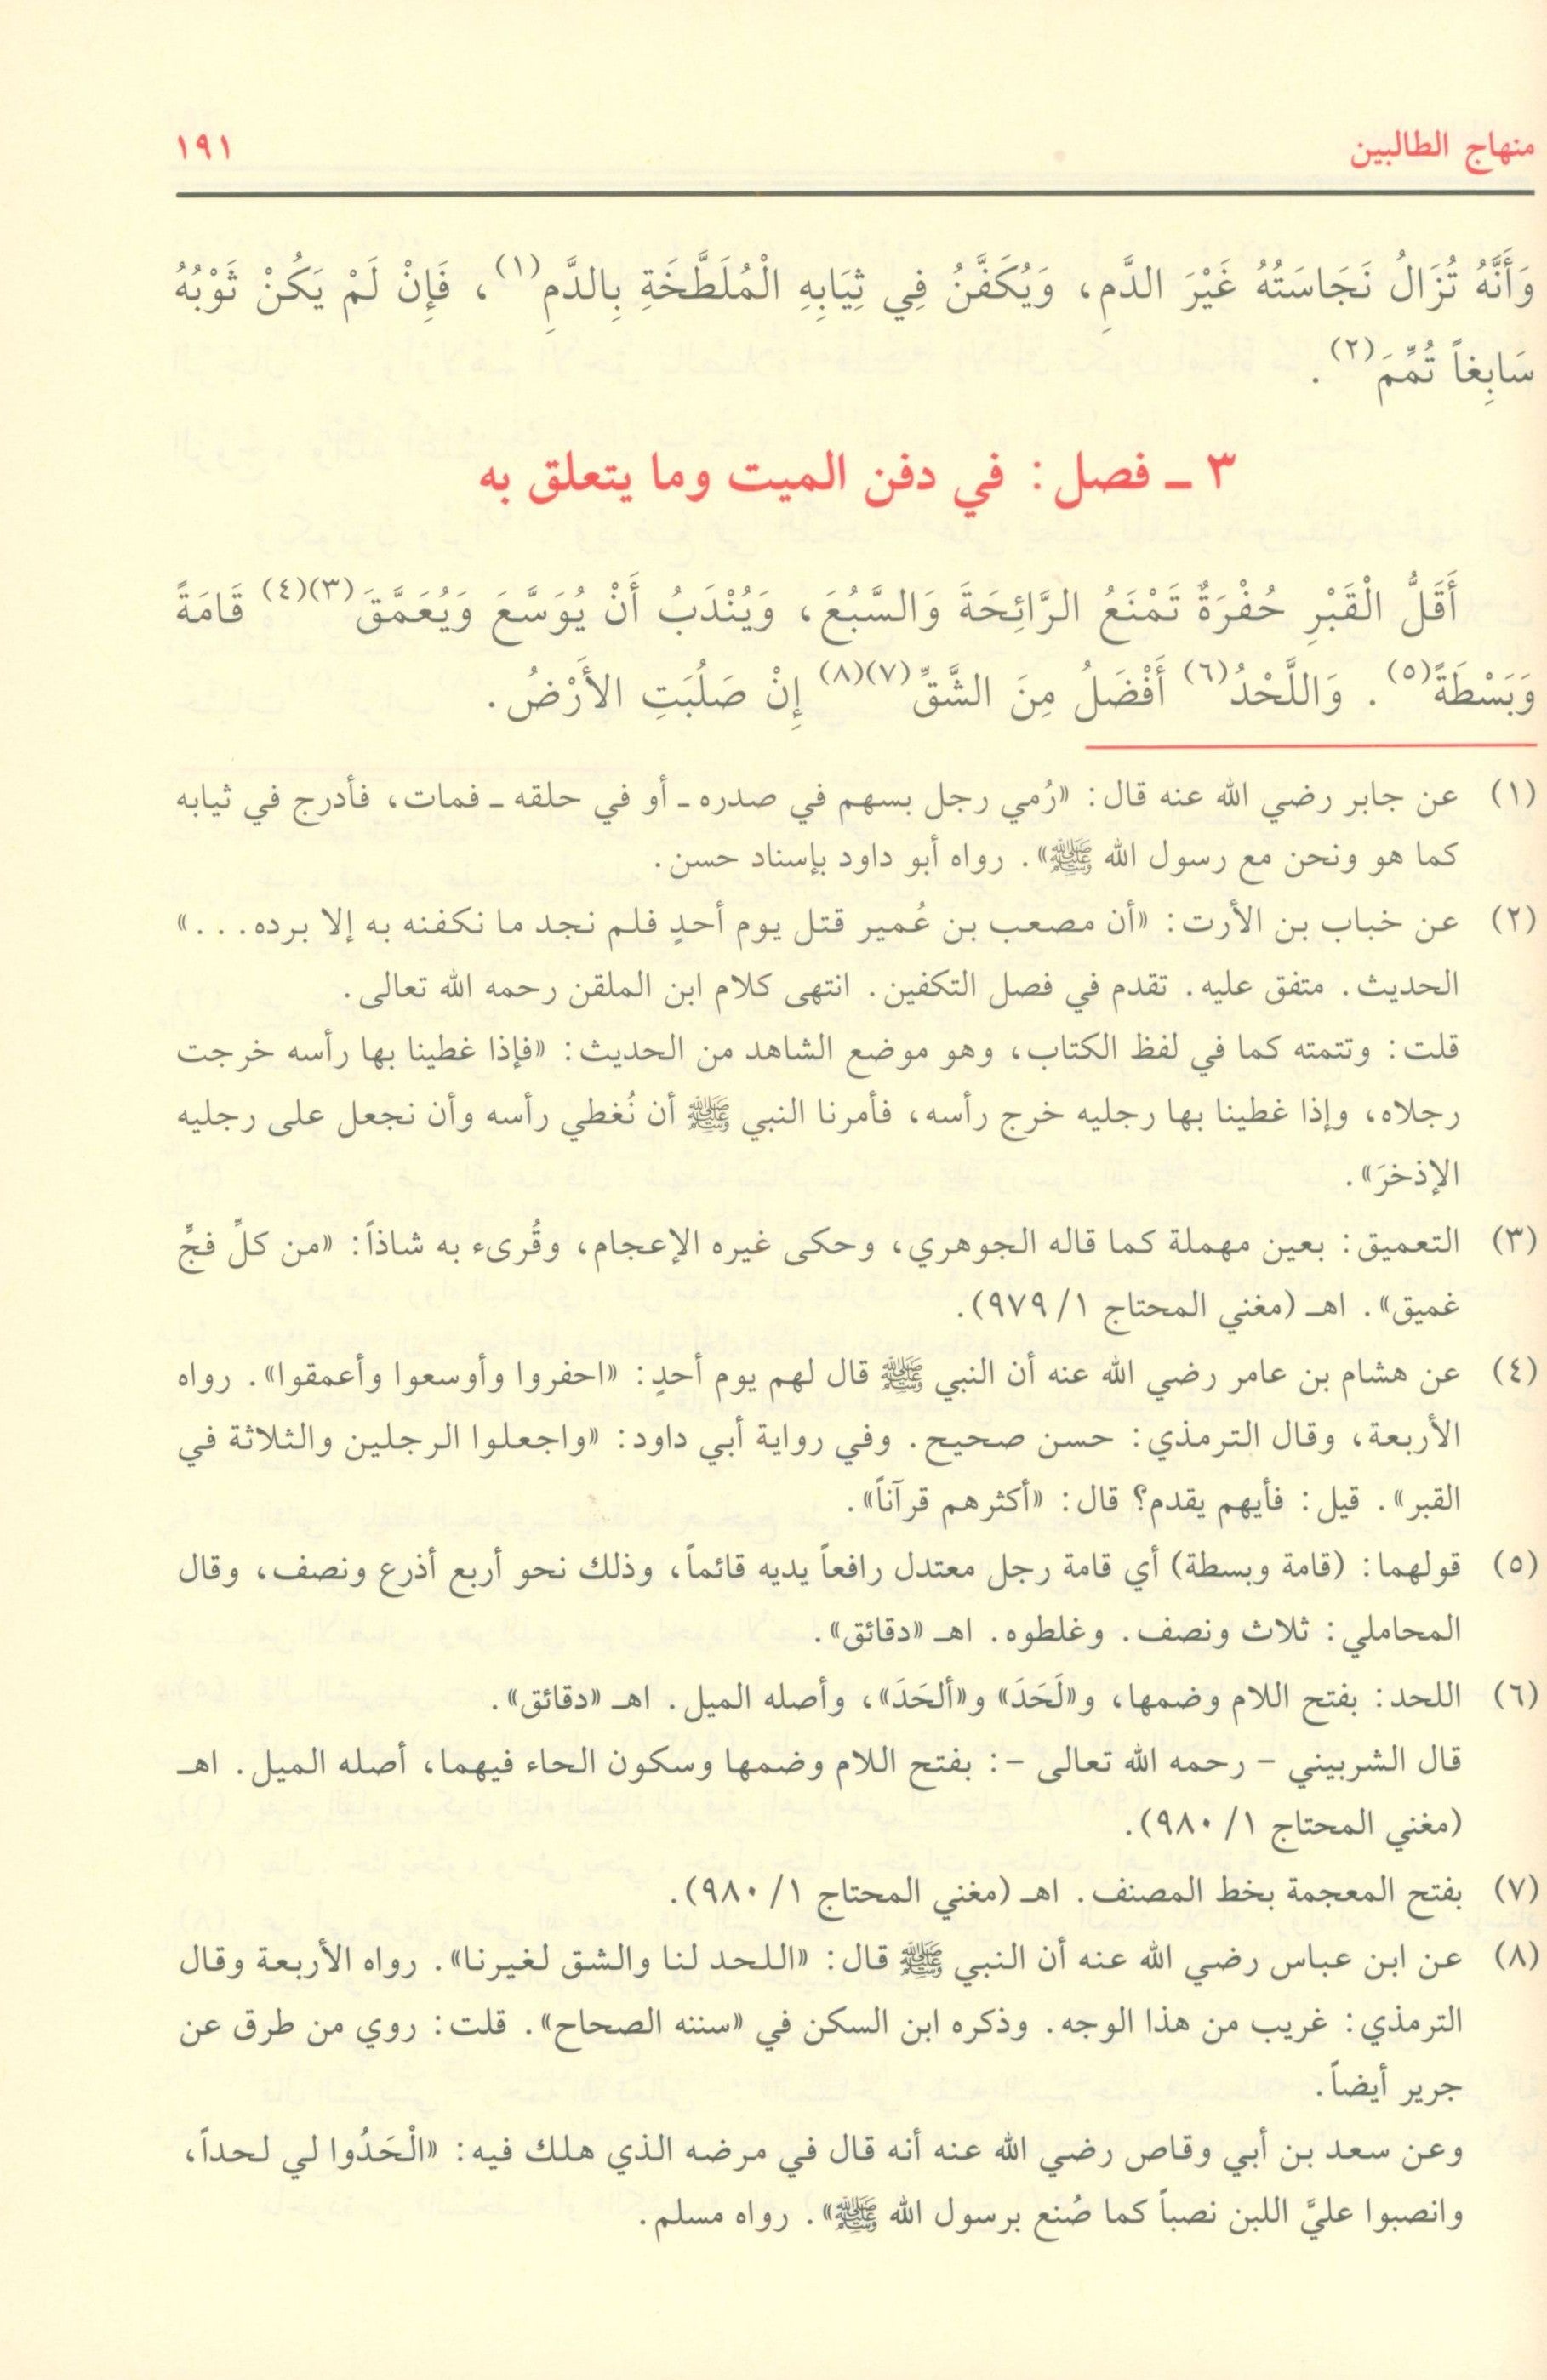 منهاج الطالبين ١٩١
وَأَنَّهُ تُزَالُ نَجَاسَتُهُ غَيْرَ الدَّمِ، وَيُكَفَّنُ فِي ثِيَابِهِ الْمُلَطَّخَةِ بِالدَّمِ(١)، فَإِنْ لَمْ يَكُنْ ثَوْبُهُ
سَابِغاً تُمِّمَ(٢).
٣ ـ فصل: في دفن الميت وما يتعلق به
أَقَلُّ الْقَبْرِ حُفْرَةٌ تَمْنَعُ الرَّائِحَةَ وَالسَّبُعَ، وَيُنْدَبُ أَنْ يُوَسَّعَ وَيُعَمَّقَ(٣)(٤) قَامَةً
وَبَسْطَةً(٥). وَاللَّحْدُ(٦) أَفْضَلُ مِنَ الشَّقِّ(٧)(٨) إِنْ صَلُبَتِ الأَرْضُ.
(١) عن جابر رضي الله عنه قال: «رُمي رجل بسهم في صدره ـ أو في حلقه ـ فمات، فأدرج في ثيابه
كما هو ونحن مع رسول الله ﷺ». رواه أبو داود بإسناد حسن.
(٢) عن خباب بن الأرت: «أن مصعب بن عُمير قتل يوم أحدٍ فلم نجد ما نكفنه به إلا برده...»
الحديث. متفق عليه. تقدم في فصل التكفين. انتهى كلام ابن الملقن رحمه الله تعالى.
قلت: وتتمته كما في لفظ الكتاب، وهو موضع الشاهد من الحديث: «فإذا غطينا بها رأسه خرجت
رجلاه، وإذا غطينا بها رجليه خرج رأسه، فأمرنا النبي ﷺ أن نُغطي رأسه وأن نجعل على رجليه
الإذخرَ».
(٣) التعميق: بعين مهملة كما قاله الجوهري، وحكى غيره الإعجام، وقُرىء به شاذاً: «من كلِّ فجٍّ
غميق». اهـ (مغني المحتاج ١/ ٩٧٩).
(٤) عن هشام بن عامر رضي الله عنه أن النبي ﷺ قال لهم يوم أحدٍ: «احفروا وأوسعوا وأعمقوا». رواه
الأربعة، وقال الترمذي: حسن صحيح. وفي رواية أبي داود: «واجعلوا الرجلين والثلاثة في
القبر». قيل: فأيهم يقدم؟ قال: «أكثرهم قرآناً».
(٥) قولهما: (قامة وبسطة) أي قامة رجل معتدل رافعاً يديه قائماً، وذلك نحو أربع أذرع ونصف، وقال
المحاملي: ثلاث ونصف. وغلطوه. اهـ «دقائق».
(٦) اللحد: بفتح اللام وضمها، و«لَحَدَ» و«ألحَدَ»، وأصله الميل. اهـ «دقائق».
قال الشربيني - رحمه الله تعالى -: بفتح اللام وضمها وسكون الحاء فيهما، أصله الميل. اهـ
(مغني المحتاج ١/ ٩٨٠).
(٧) بفتح المعجمة بخط المصنف. اهـ (مغني المحتاج ١/ ٩٨٠).
(٨) عن ابن عباس رضي الله عنه أن النبي ﷺ قال: «اللحد لنا والشق لغيرنا». رواه الأربعة وقال
الترمذي: غريب من هذا الوجه. وذكره ابن السكن في «سننه الصحاح». قلت: روي من طرق عن
جرير أيضاً.
وعن سعد بن أبي وقاص رضي الله عنه أنه قال في مرضه الذي هلك فيه: «الْحَدُوا لي لحداً،
وانصبوا عليَّ اللبن نصباً كما صُنع برسول الله ﷺ». رواه مسلم.